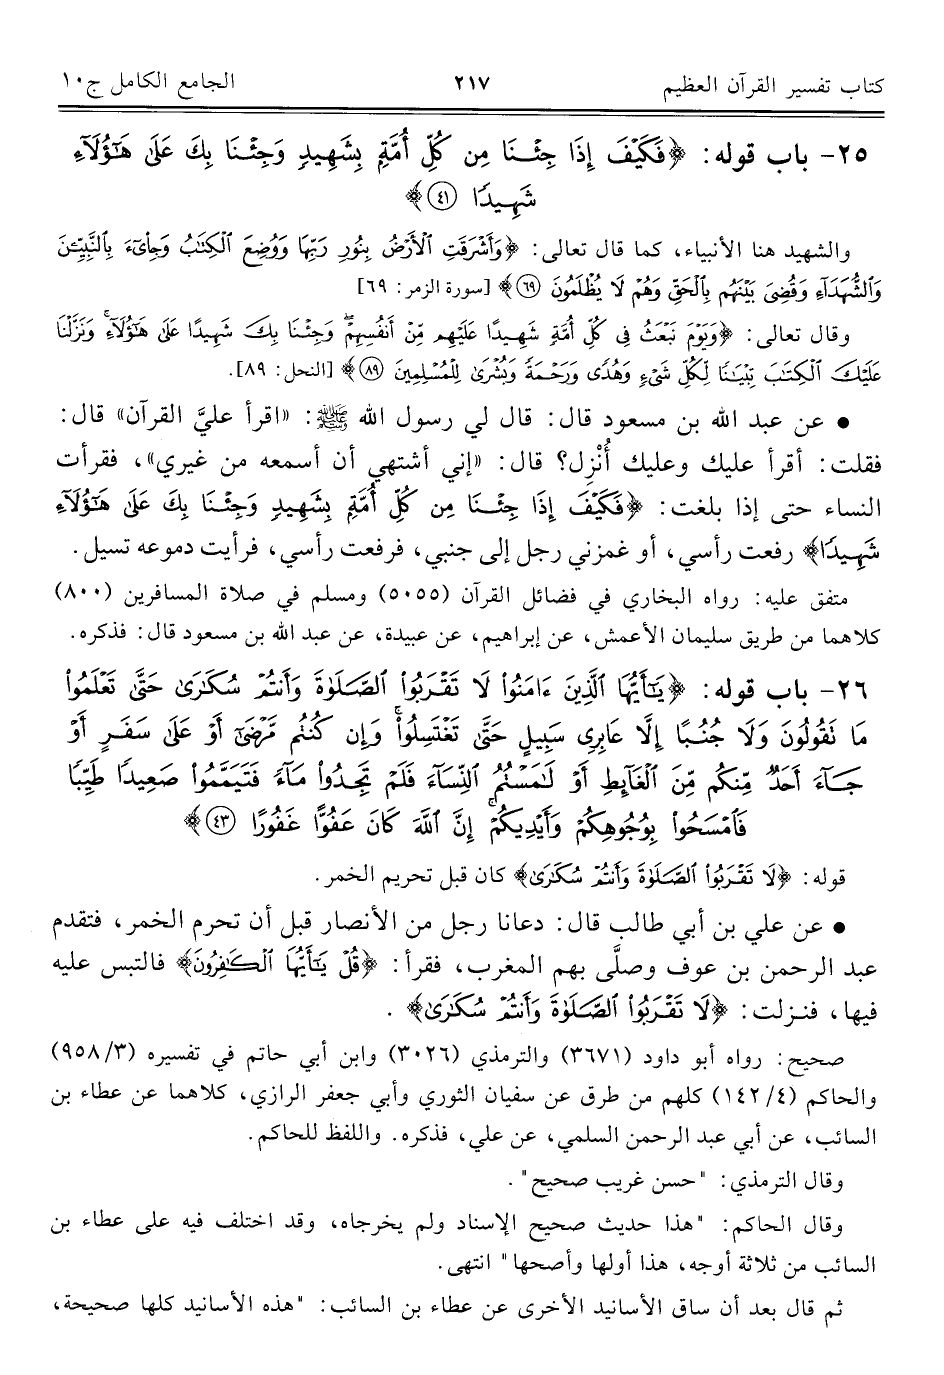 كتاب تفسير القرآن العظيم ٢١٧ الجامع الكامل ج١٠
٢٥- باب قوله: ﴿فَكَيْفَ إِذَا جِئْنَا مِن كُلِّ أُمَّةٍۭ بِشَهِيدٍ وَجِئْنَا بِكَ عَلَىٰ هَٰٓؤُلَآءِ
شَهِيدًا ٤١﴾
والشهيد هنا الأنبياء، كما قال تعالى: ﴿وَأَشْرَقَتِ ٱلْأَرْضُ بِنُورِ رَبِّهَا وَوُضِعَ ٱلْكِتَٰبُ وَجِا۟ىٓءَ بِٱلنَّبِيِّـۧنَ
وَٱلشُّهَدَآءِ وَقُضِىَ بَيْنَهُم بِٱلْحَقِّ وَهُمْ لَا يُظْلَمُونَ ٦٩﴾ [سورة الزمر: ٦٩]
وقال تعالى: ﴿وَيَوْمَ نَبْعَثُ فِى كُلِّ أُمَّةٍ شَهِيدًا عَلَيْهِم مِّنْ أَنفُسِهِمْ ۖ وَجِئْنَا بِكَ شَهِيدًا عَلَىٰ هَٰٓؤُلَآءِ ۚ وَنَزَّلْنَا
عَلَيْكَ ٱلْكِتَٰبَ تِبْيَٰنًا لِّكُلِّ شَىْءٍ وَهُدًى وَرَحْمَةً وَبُشْرَىٰ لِلْمُسْلِمِينَ ٨٩﴾ [النحل: ٨٩].
• عن عبد الله بن مسعود قال: قال لي رسول الله ﷺ: «اقرأ عليَّ القرآن» قال:
فقلت: أقرأ عليك وعليك أُنْزِل؟ قال: «إني أشتهي أن أسمعه من غيري»، فقرأت
النساء حتى إذا بلغت: ﴿فَكَيْفَ إِذَا جِئْنَا مِن كُلِّ أُمَّةٍۭ بِشَهِيدٍ وَجِئْنَا بِكَ عَلَىٰ هَٰٓؤُلَآءِ
شَهِيدًا﴾ رفعت رأسي، أو غمزني رجل إلى جنبي، فرفعت رأسي، فرأيت دموعه تسيل.
متفق عليه: رواه البخاري في فضائل القرآن (٥٠٥٥) ومسلم في صلاة المسافرين (٨٠٠)
كلاهما من طريق سليمان الأعمش، عن إبراهيم، عن عبيدة، عن عبد الله بن مسعود قال: فذكره.
٢٦- باب قوله: ﴿يَٰٓأَيُّهَا ٱلَّذِينَ ءَامَنُوا۟ لَا تَقْرَبُوا۟ ٱلصَّلَوٰةَ وَأَنتُمْ سُكَٰرَىٰ حَتَّىٰ تَعْلَمُوا۟
مَا تَقُولُونَ وَلَا جُنُبًا إِلَّا عَابِرِى سَبِيلٍ حَتَّىٰ تَغْتَسِلُوا۟ ۚ وَإِن كُنتُم مَّرْضَىٰٓ أَوْ عَلَىٰ سَفَرٍ أَوْ
جَآءَ أَحَدٌ مِّنكُم مِّنَ ٱلْغَآئِطِ أَوْ لَٰمَسْتُمُ ٱلنِّسَآءَ فَلَمْ تَجِدُوا۟ مَآءً فَتَيَمَّمُوا۟ صَعِيدًا طَيِّبًا
فَٱمْسَحُوا۟ بِوُجُوهِكُمْ وَأَيْدِيكُمْ ۗ إِنَّ ٱللَّهَ كَانَ عَفُوًّا غَفُورًا ٤٣﴾
قوله: ﴿لَا تَقْرَبُوا۟ ٱلصَّلَوٰةَ وَأَنتُمْ سُكَٰرَىٰ﴾ كان قبل تحريم الخمر.
• عن علي بن أبي طالب قال: دعانا رجل من الأنصار قبل أن تحرم الخمر، فتقدم
عبد الرحمن بن عوف وصلَّى بهم المغرب، فقرأ: ﴿قُلْ يَٰٓأَيُّهَا ٱلْكَٰفِرُونَ﴾ فالتبس عليه
فيها، فنزلت: ﴿لَا تَقْرَبُوا۟ ٱلصَّلَوٰةَ وَأَنتُمْ سُكَٰرَىٰ﴾.
صحيح: رواه أبو داود (٣٦٧١) والترمذي (٣٠٢٦) وابن أبي حاتم في تفسيره (٣/٩٥٨)
والحاكم (٤/١٤٢) كلهم من طرق عن سفيان الثوري وأبي جعفر الرازي، كلاهما عن عطاء بن
السائب، عن أبي عبد الرحمن السلمي، عن علي، فذكره. واللفظ للحاكم.
وقال الترمذي: "حسن غريب صحيح".
وقال الحاكم: "هذا حديث صحيح الإسناد ولم يخرجاه، وقد اختلف فيه على عطاء بن
السائب من ثلاثة أوجه، هذا أولها وأصحها" انتهى.
ثم قال بعد أن ساق الأسانيد الأخرى عن عطاء بن السائب: "هذه الأسانيد كلها صحيحة،